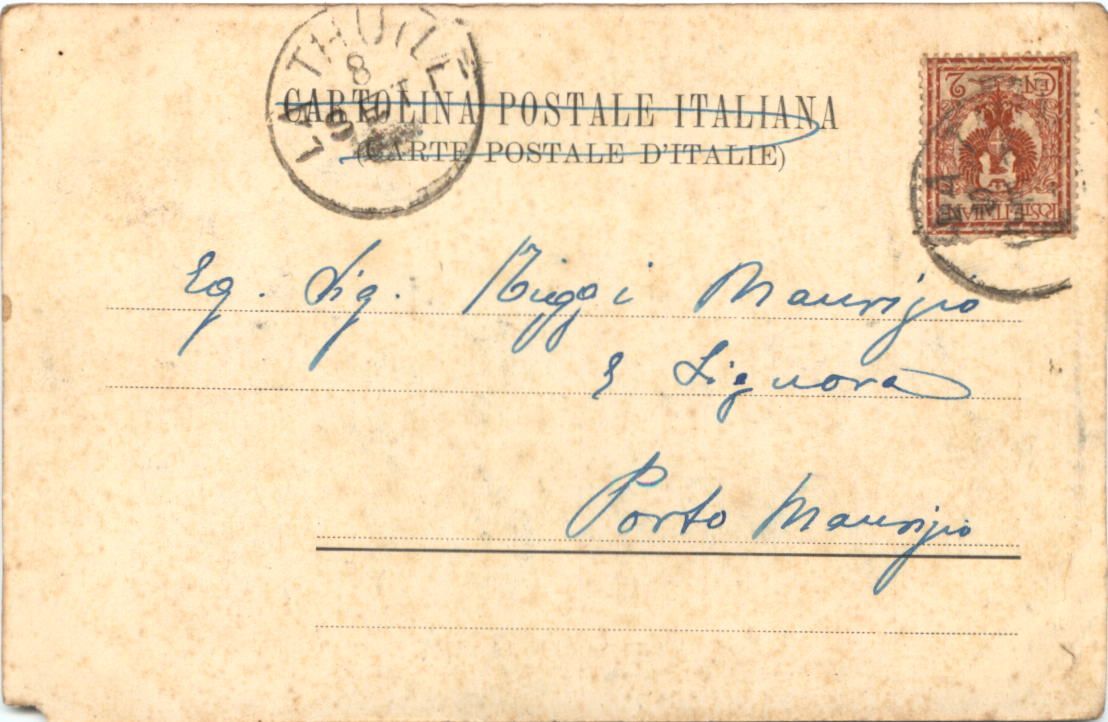 LA THUILE
8
CARTOLINA POSTALE ITALIANA
(CARTE POSTALE D'ITALIE)
CEN. 2
POSTE ITALIANE
Eg. Sig. Riggi Maurizio
e Signora
Porto Maurizio